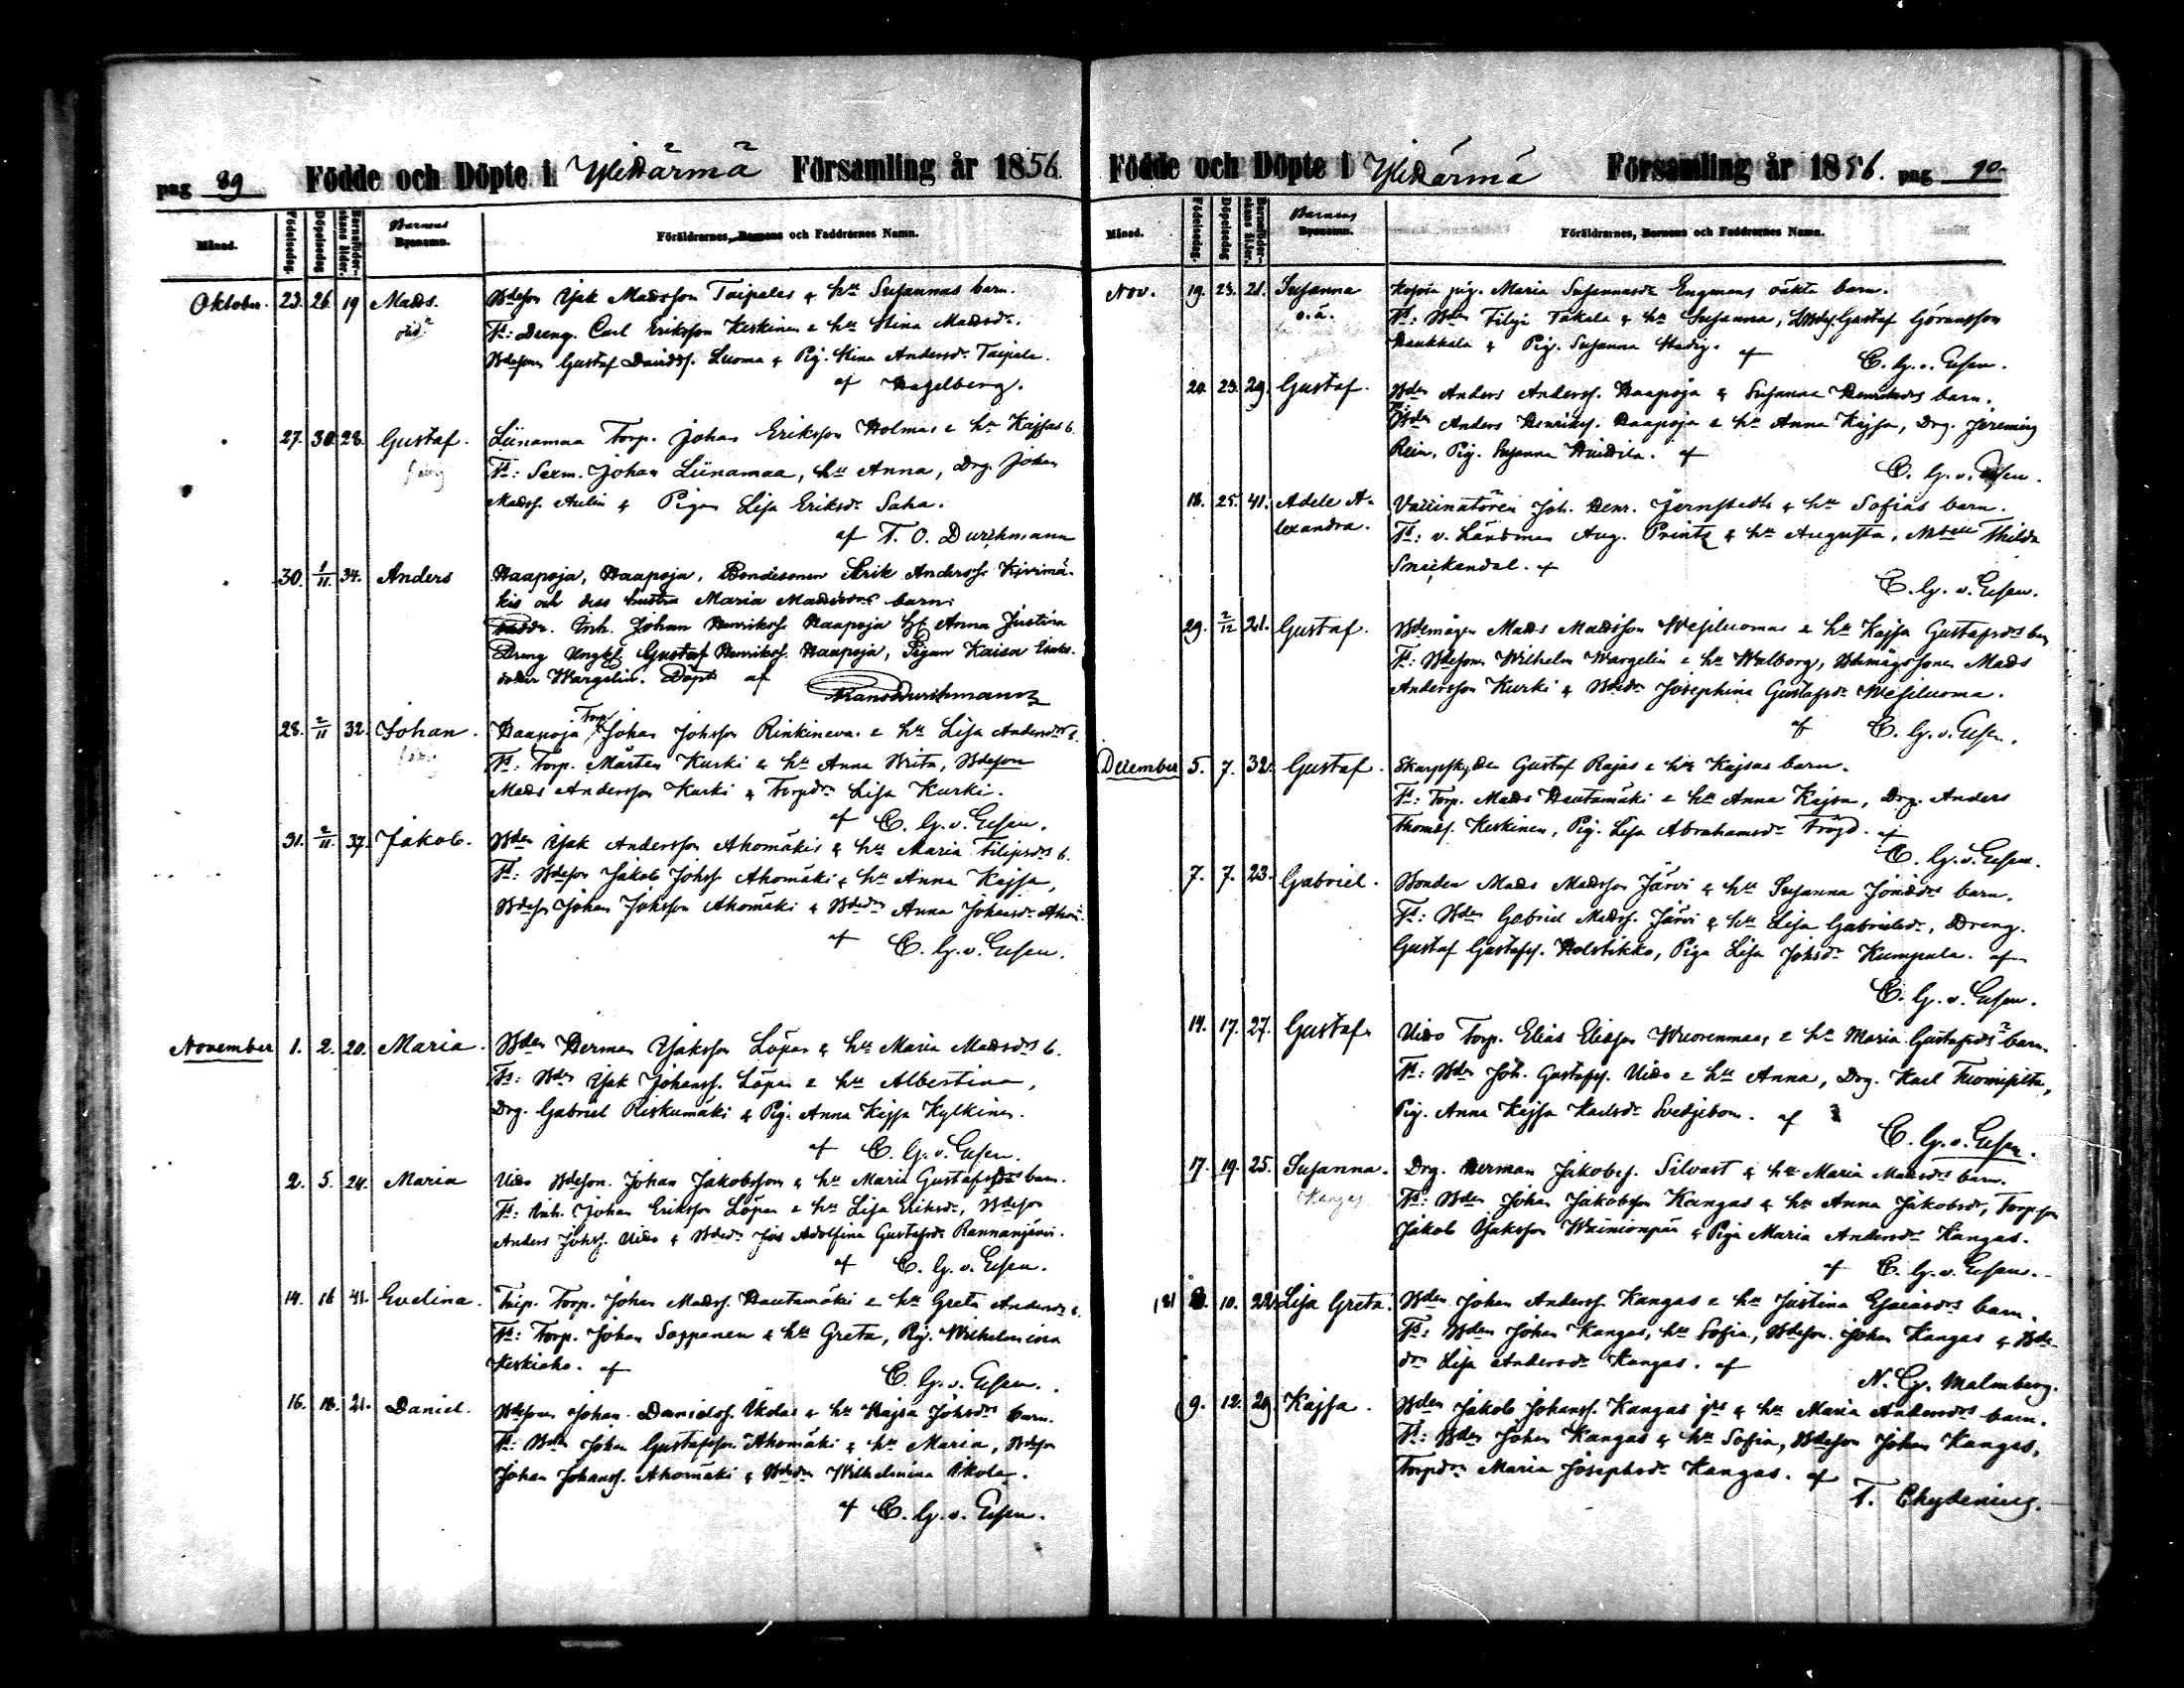 pag 89 Födde och Döpte i Ylihärmä Församling år 1856.
Månad. Födelsedag. Döpelsedag Barnaföderskans ålder. Barnens Byanamn. Föräldrarnes, Barnens och Faddrarnes Namn.
Oktober. 23. 26. 19 Mads. Bdeson Isak Madsson Taipales & hu Susannas barn.
Ft: Dreng. Carl Eriksson Keskinen & hu Stina Madsdr.
Bdesonen Gustaf Davidss. Luoma & Pig. Stina Andersdr Taipale.
af Hagelberg.
27. 30. 28. Gustaf. Liinamaa Torp. Johan Eriksson Holmas & hu Kajsas b.
Ft: Sexm. Johan Liinamaa, hu Anna, Drg. Johan
Madss. Aulin & Pigan Lisa Eriksdr Saha.
af F. O. Durchman
30. 1/11 34. Anders Haapoja, Haapoja, Bondesonen Erik Anderss. Kivimä-
kis och dess hustru Maria Madsdrs barn.
Faddr. Inh. Johan Henrikss. Haapoja h. Anna Justina
Dreng Ungkl. Gustaf Henrikss. Haapoja, Pigan Kaisa Eriks-
dotter Wargelin. Döpt af Frans Durchman
28. 2/11 32. Johan. Haapoja Torp. Johan Johsson Rinkineva & hu Lisa Andersdrs b.
Ft: Torp. Mårten Kurki & hu Anna Brita, Bdeson
Mads Andersson Kurki & Torpdr Lisa Kurki.
af C. G. v. Essen.
31. 2/11. 37. Jakob. Bden Isak Andersson Ahomäkis & hu Maria Filipsdrs b.
Ft: Bdeson Jakob Johss. Ahomäki & hu Anna Kajsa,
Bdeson Johan Johsson Ahomäki & Bdedr Anna Johansdr Ahom.
af C. G. v. Essen.
November 1. 2. 20. Maria. Bden Herman Isaksson Löpas & hu Maria Madsdrs b.
Ft: Bden Isak Johanss. Löpas & hu Albertina,
Drg. Gabriel Riskumäki & Pig. Anna Kajsa Kylkinen.
af C. G. v. Essen.
2. 5. 24. Maria Uido Bdeson. Johan Jakobssons & hu Maria Gustafsdrs barn.
Ft: Inh. Johan Eriksson Löpas & hu Lisa Eriksdr, Bdeson
Anders Johss. Uido & Bdedr Adolfina Gustafsdr Rannanjärvi.
af C. G. v. Essen.
14. 16 41. Evelina. Taip. Torp. Johan Madss. Hautamäki & hu Greta Andersdrs b.
Ft: Torp. Johan Soppanen & hu Greta, Pig. Wilhelmina
Keskiaho. af C. G. v. Essen.
16. 18. 21. Daniel. Bdeson Johan Danielss. Ikolas & hu Kajsa Johsdrs barn.
Ft: Bden Johan Gustafsson Ahomäki & hu Maria, Bdeson
Johan Johanss. Ahomäki & Bdedr Wilhelmina Ikola.
af C. G. v. Essen.
Födde och Döpte i Ylihärmä Församling år 1856. pag 90.
Månad. Födelsedag. Döpelsedag Barnaföderskans ålder. Barnens Byanamn. Föräldrarnes, Barnens och Faddrarnes Namn.
Nov. 19. 23. 21. Susanna o.ä. pig. Maria Susannasdr Engmans oäkta barn.
Ft: Bden Filip Takala & hu Susanna, Gustaf Göransson
Haukkala & Pig. Susanna Stadig. af C. G. v. Essen.
20. 23. 29. Gustaf. Bden Anders Anderss. Haapoja & Susanna Henriksdrs barn.
Ft: Bden Anders Henrikss. Haapoja & hu Anna Kajsa, Drg. Jeremias
Rein, Pig. Susanna. af C. G. v. Essen.
18. 25. 41. Adele A-
lexandra. Vaccinatören Joh. Henr. Jernstedts & hu Sofias barn.
Ft: v. Länsman Aug. Printz & hu Augusta, Mselle Thilda
Sneckendal. af C. G. v. Essen.
29. 2/12 21. Gustaf. Bdemågen Mads Madsson Wesiluomas & hu Kajsa Gustafsdrs barn
Ft: Bdesonen Wilhelm Wargelin & hu Walborg, Bdemågssonen Mads
Andersson Kurki & Bdedr Josephina Gustafsdr Wesiluoma.
af C. G. v. Essen.
December 5. 7. 32. Gustaf. Skarpskytten Gustaf Rajas & hu Kajsas barn.
Ft: Torp. Mads Hautamäki & hu Anna Kajsa, Drg. Anders
Thomass. Keskinen, Pig. Lisa Abrahamsdr Fröjd. af C. G. v. Essen.
7. 7. 23. Gabriel. Bonden Mads Madsson Järvi & hu Susanna barn.
Ft: Bden Gabriel Madss. Järvi & hu Lisa Gabrielsdr, Dreng.
Gustaf Gustafss. Holstikko, Piga Lisa Johsdr Kumpula. af
C. G. v. Essen.
14. 17. 27. Gustaf Uido Torp. Elias Eliasson Wuorenmaas & hu Maria Gustafsdrs barn.
Ft: Bden Joh. Gustafss. Uido & hu Anna, Drg. Karl Tuomisilta,
Pig. Anna Kajsa Karlsdr Svedjebom. af C. G. v. Essen.
17. 19. 25. Susanna. Drg. Herman Jakobss. Silvast & hu Maria Madsdrs barn.
Kangas Ft: Bden Johan Jakobsson Kangas & hu Anna Jakobsdr, Torpson
Jakob Isaksson Wainionpää & Piga Maria Andersdr Kangas.
af C. G. v. Essen.
8. 10. 22. Lisa Greta. Bden Johan Anderss. Kangas & hu Justina Esaiasdrs barn.
Ft: Bden Johan Kangas, hu Sofia, Bdeson. Johan Kangas & Bde-
dr Lisa Andersdr Kangas. af N. G. Malmberg.
9. 12. 29. Kajsa. Bden Jakob Johanss. Kangas jrs & hu Maria Andersdrs barn.
Ft: Bden Johan Kangas & hu Sofia, Bdeson Johan Kangas,
Torpdr Maria Josephsdr Kangas. af
T. Chydenius.